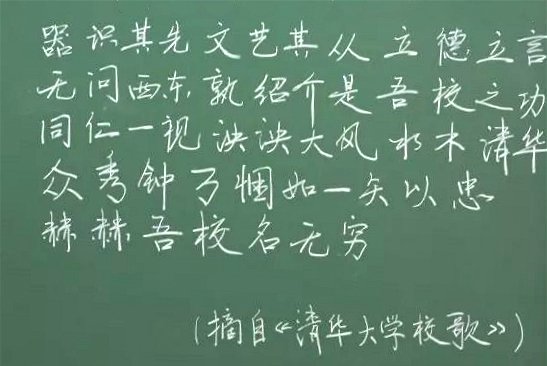 器识其先文艺其从立德立言
无问西东孰绍介是吾校之功
同仁一视泱泱大风水木清华
众秀钟万悃如一矢以忠
赫赫吾校名无穷
(摘自《清华大学校歌》)